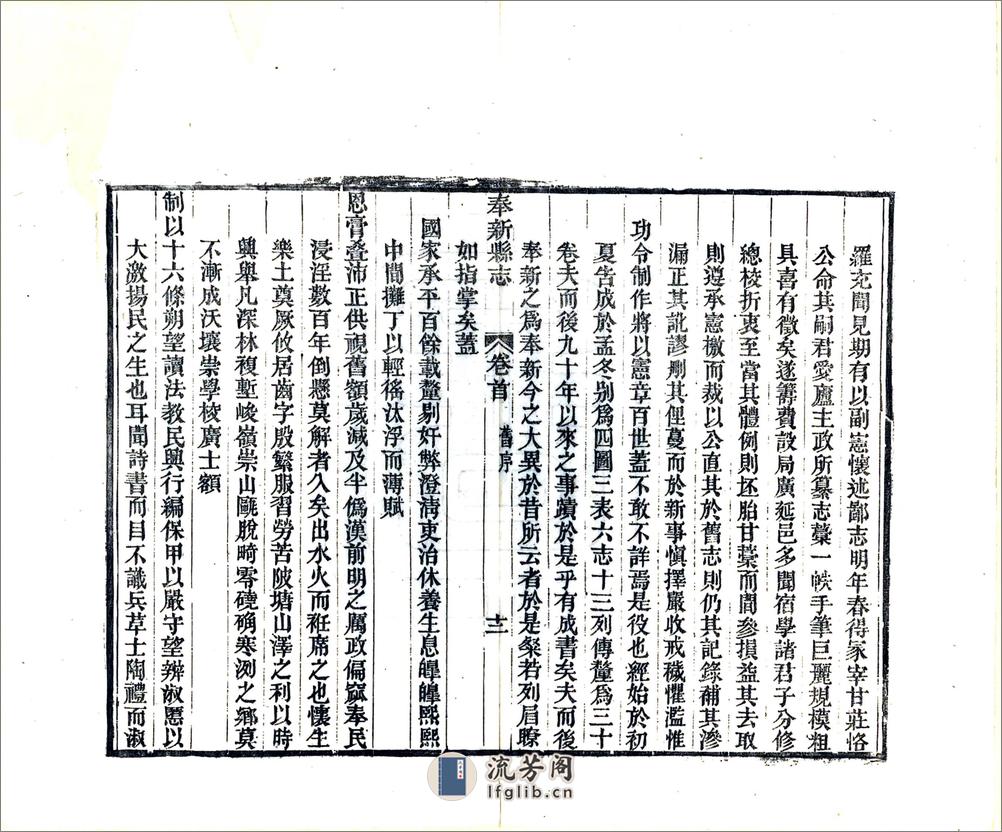 羅充聞見期有以副憲懷述鄙志明年春得冢宰甘莊恪
公命其嗣君愛廬主政所纂志藁一帙手筆巨麗規模粗
具喜有徵矣遂籌費設局廣延邑多聞宿學諸君子分修
總校折衷至當其體例則坯胎甘藁而間參損益其去取
則遵承憲檄而裁以公直其於舊志則仍其記錄補其滲
漏正其訛謬刪其俚蔓而於新事慎擇嚴收戒穢懼濫惟
功令制作將以憲章百世蓋不敢不詳焉是役也經始於初
夏告成於孟冬別爲四圖三表六志十三列傳釐爲三十
卷夫而後九十年以來之事蹟於是乎有成書矣夫而後
奉新之爲奉新今之大異於昔所云者於是粲若列眉瞭
奉新縣志 卷首 舊序 十二
如指掌矣蓋
國家承平百餘載釐剔奸弊澄淸吏治休養生息皥皥熙熙
中間攤丁以輕徭汰浮而薄賦
恩膏叠沛正供視舊額歲減及半僞漢前明之厲政偏窳奉民
浸淫數百年倒懸莫解者久矣出水火而袵席之也懐生
樂土奠厥攸居齒字殷繁服習勞苦陂塘山澤之利以時
興舉凡深林複塹峻嶺崇山甌脫畸零磽确寒冽之鄉莫
不漸成沃壤崇學校廣士額
制以十六條朔望讀法教民興行編保甲以嚴守望辨淑慝以
大激揚民之生也耳聞詩書而目不識兵革士陶禮而淑
流芳阁
lfglib.cn